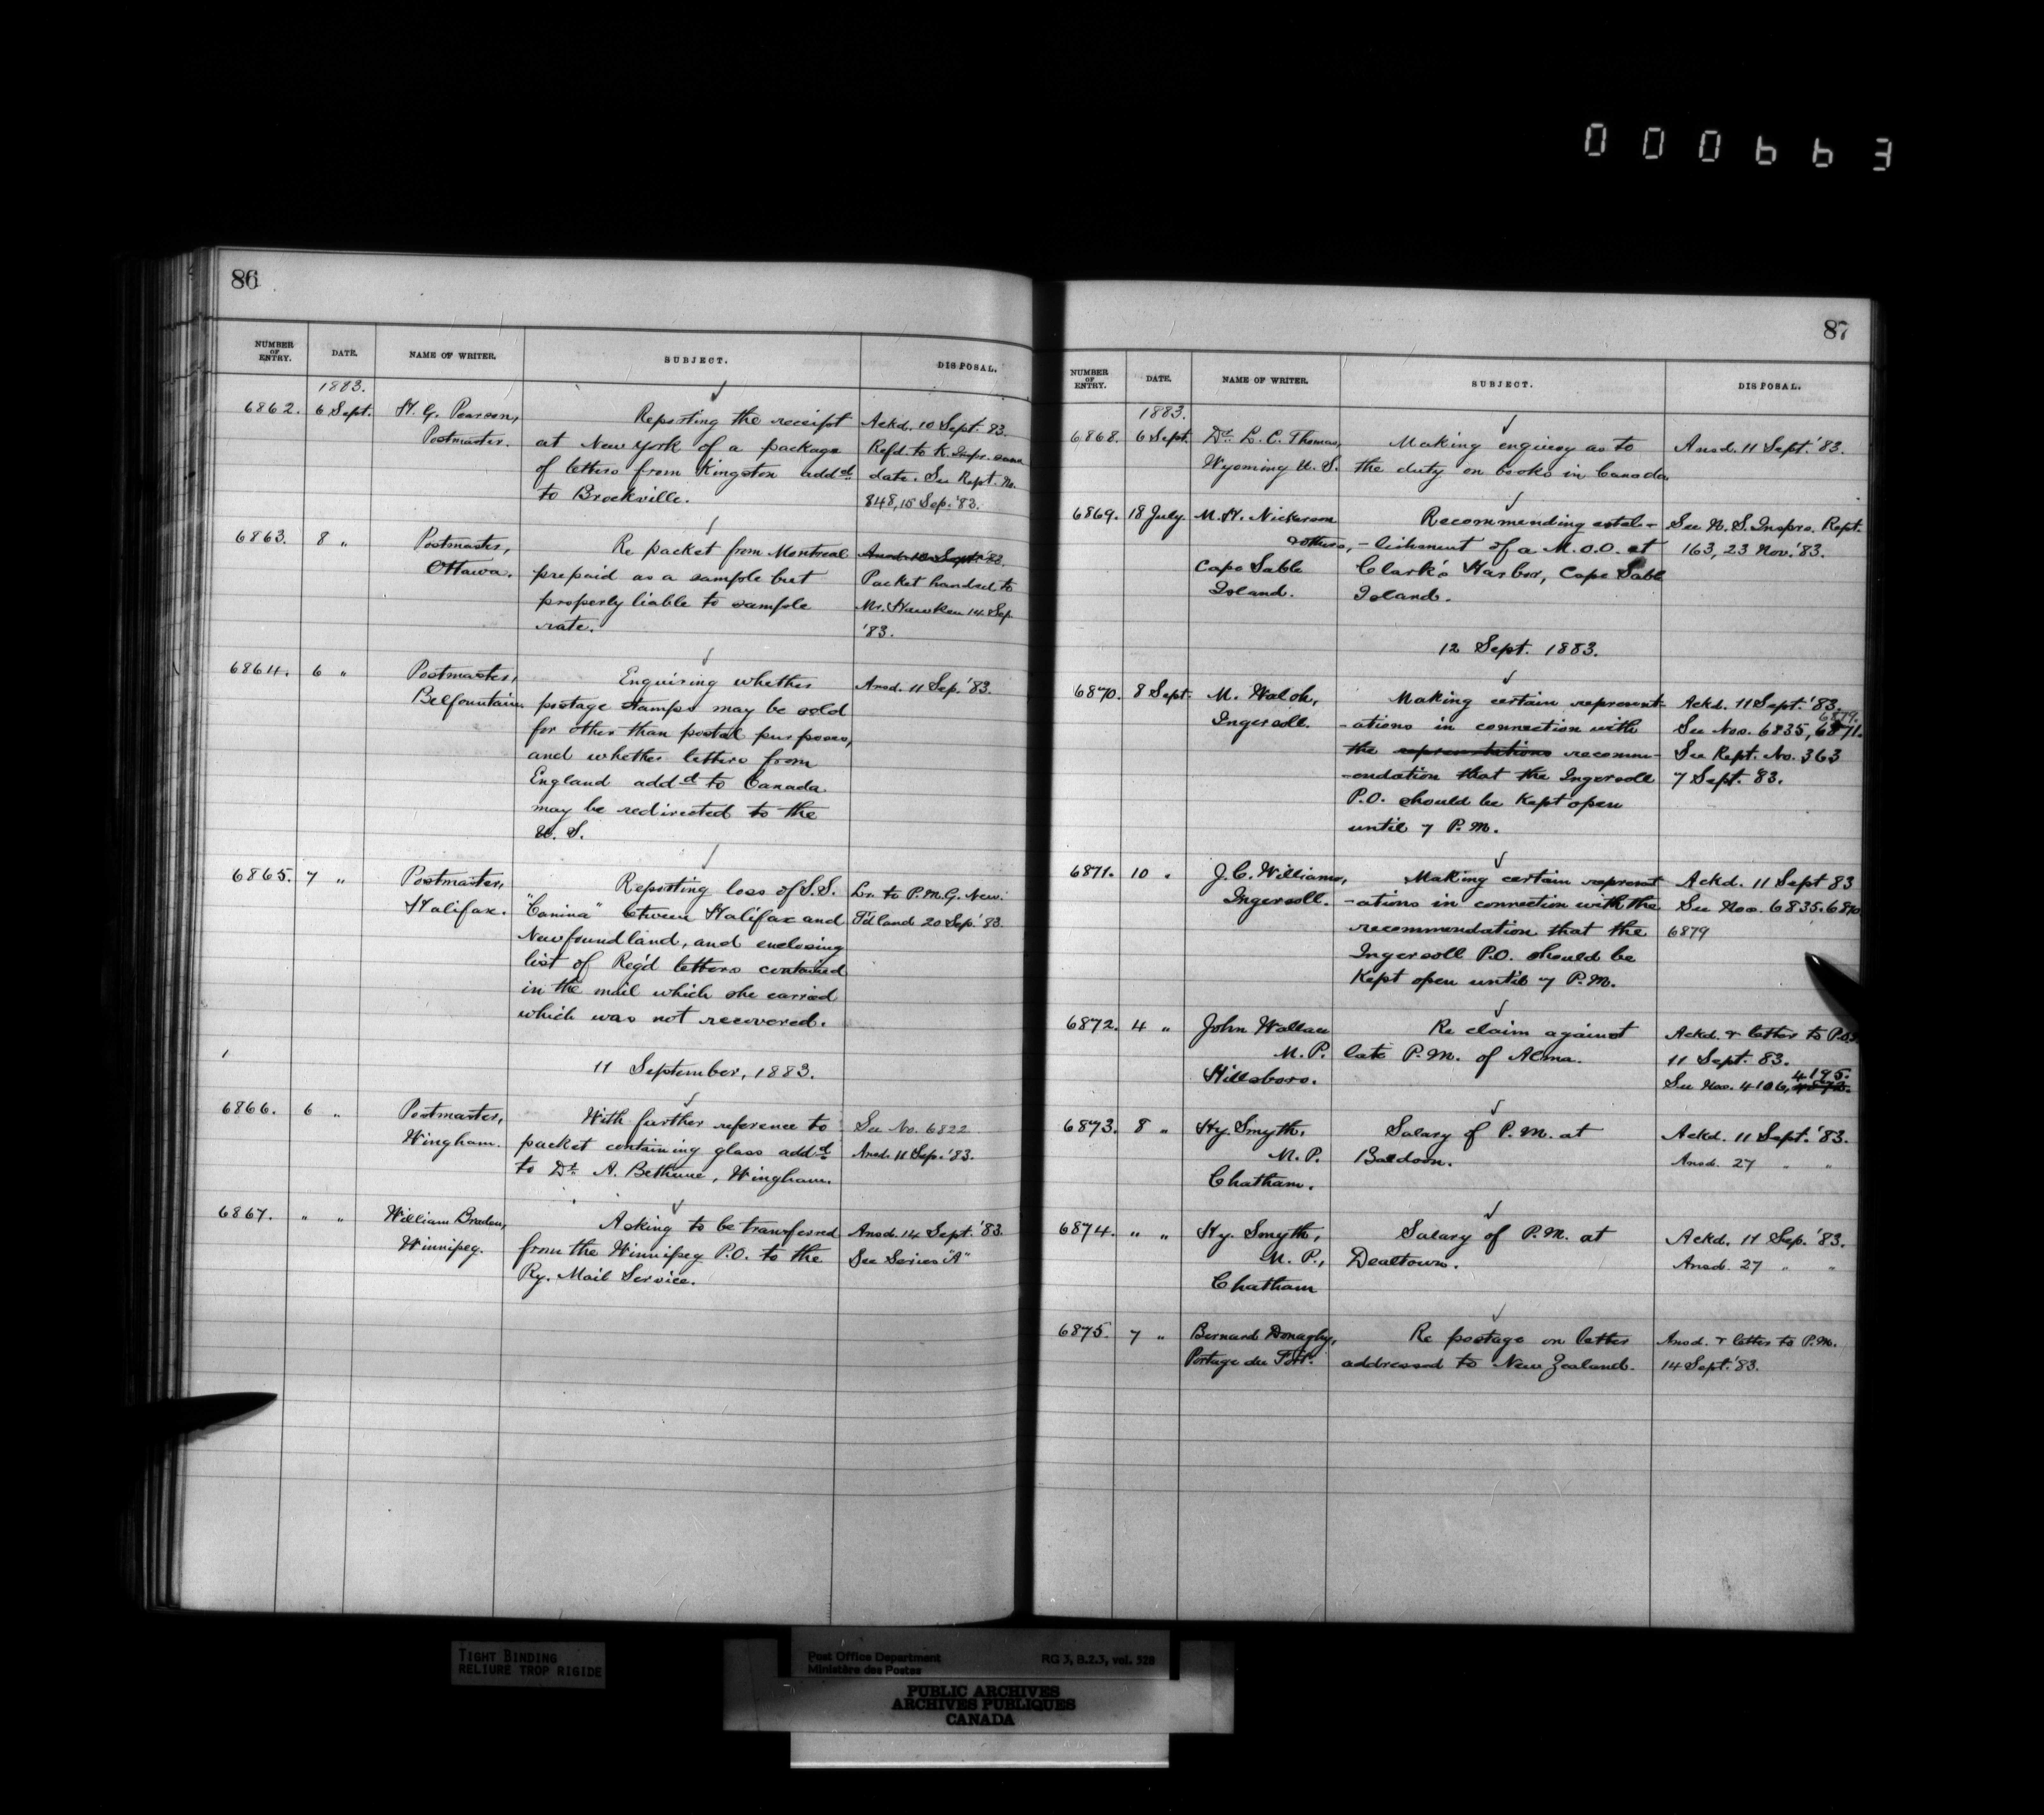 000663
86
NUMBER OF ENTRY. DATE. NAME OF WRITER. SUBJECT. DISPOSAL.
1883.
6862. 6 Sept. H. G. Pearson, Reporting the receipt Ackd. 10 Sept. 83.
Postmaster. at New York of a package Refd. to K. Inspr. same
of letters from Kingston addd. date. See Rept. No.
to Brockville. 848, 15 Sep. '83.
6863. 8 " Postmaster, Re packet from Montreal Ansd. 10 Sept. '83.
Ottawa. prepaid as a sample but Packet handed to
properly liable to sample Mr. Hawken 14 Sep.
rate. '83.
6864. 6 " Postmaster, Enquiring whether Ansd. 11 Sep. '83.
Belfountain. postage stamps may be sold
for other than postal purposes,
and whether letters from
England addd to Canada.
may be redirected to the
U. S.
6865. 7 " Postmaster, Reporting loss of S.S. Lr. to P.M.G. New.
Halifax. "Canina" between Halifax and F'dland 20 Sep. '83.
Newfoundland, and enclosing
list of Reg'd letters contained
in the mail which she carried
which was not recovered.
11 September, 1883.
6866. 6 " Postmaster, With further reference to See No. 6822
Wingham. packet containing glass addd. Ansd. 11 Sep. '83.
to Dr. A. Bethune, Wingham.
6867. " " William Braden, Asking to be transferred Ansd. 14 Sept. '83.
Winnipeg. from the Winnipeg P.O. to the See Series "A"
Ry. Mail Service.
87
NUMBER OF ENTRY. DATE. NAME OF WRITER. SUBJECT. DISPOSAL.
1883.
6868. 6 Sept. Dr. L. C. Thomas, Making enquiry as to Ansd. 11 Sept. '83.
Wyoming U. S. the duty on books in Canada
6869. 18 July. M. H. Nickerson Recommending estab- See N. S. Insprs. Rept.
& others, -lishment of a M.O.O. at 163, 23 Nov. '83.
Cape Sable Clark's Harbor, Cape Sable
Island. Island.
12 Sept. 1883.
6870. 8 Sept. M. Walsh, Making certain represent- Ackd. 11 Sept. '83.
6879.
Ingersoll. -ations in connection with See Nos. 6835, 6871.
the representations recomm- See Rept. No. 363
-endation that the Ingersoll 7 Sept. 83.
P.O. should be kept open
until 7 P.M.
6871. 10 " J. C. Williams, Making certain represent Ackd. 11 Sept 83
Ingersoll. -ations in connection with the See Nos. 6835. 6870
recommendation that the 6879
Ingersoll P.O. should be
kept open until 7 P.M.
6872. 4 " John Wallace Re claim against Ackd. & letter to P.O.I.
M. P. late P.M. of Alma. 11 Sept. 83.
4195.
Hillsboro. See Nos. 4106,
6873. 8 " Hy. Smyth, Salary of P. M. at Ackd. 11 Sept. '83.
M. P. Baldoon. Ansd. 27 " "
Chatham.
6874. " " Hy. Smyth, Salary of P.M. at Ackd. 11 Sep. '83.
M. P., Dealtown. Ansd. 27 " "
Chatham
6875. 7 " Bernard Donaghy, Re postage on letter Ansd. & letter to P.M.
Portage du Fort. addressed to New Zealand. 14 Sept. '83.
TIGHT BINDING
RELIURE TROP RIGIDE
Post Office Department RG 3, B.2.3, vol. 528
Ministère des Postes
PUBLIC ARCHIVES
ARCHIVES PUBLIQUES
CANADA